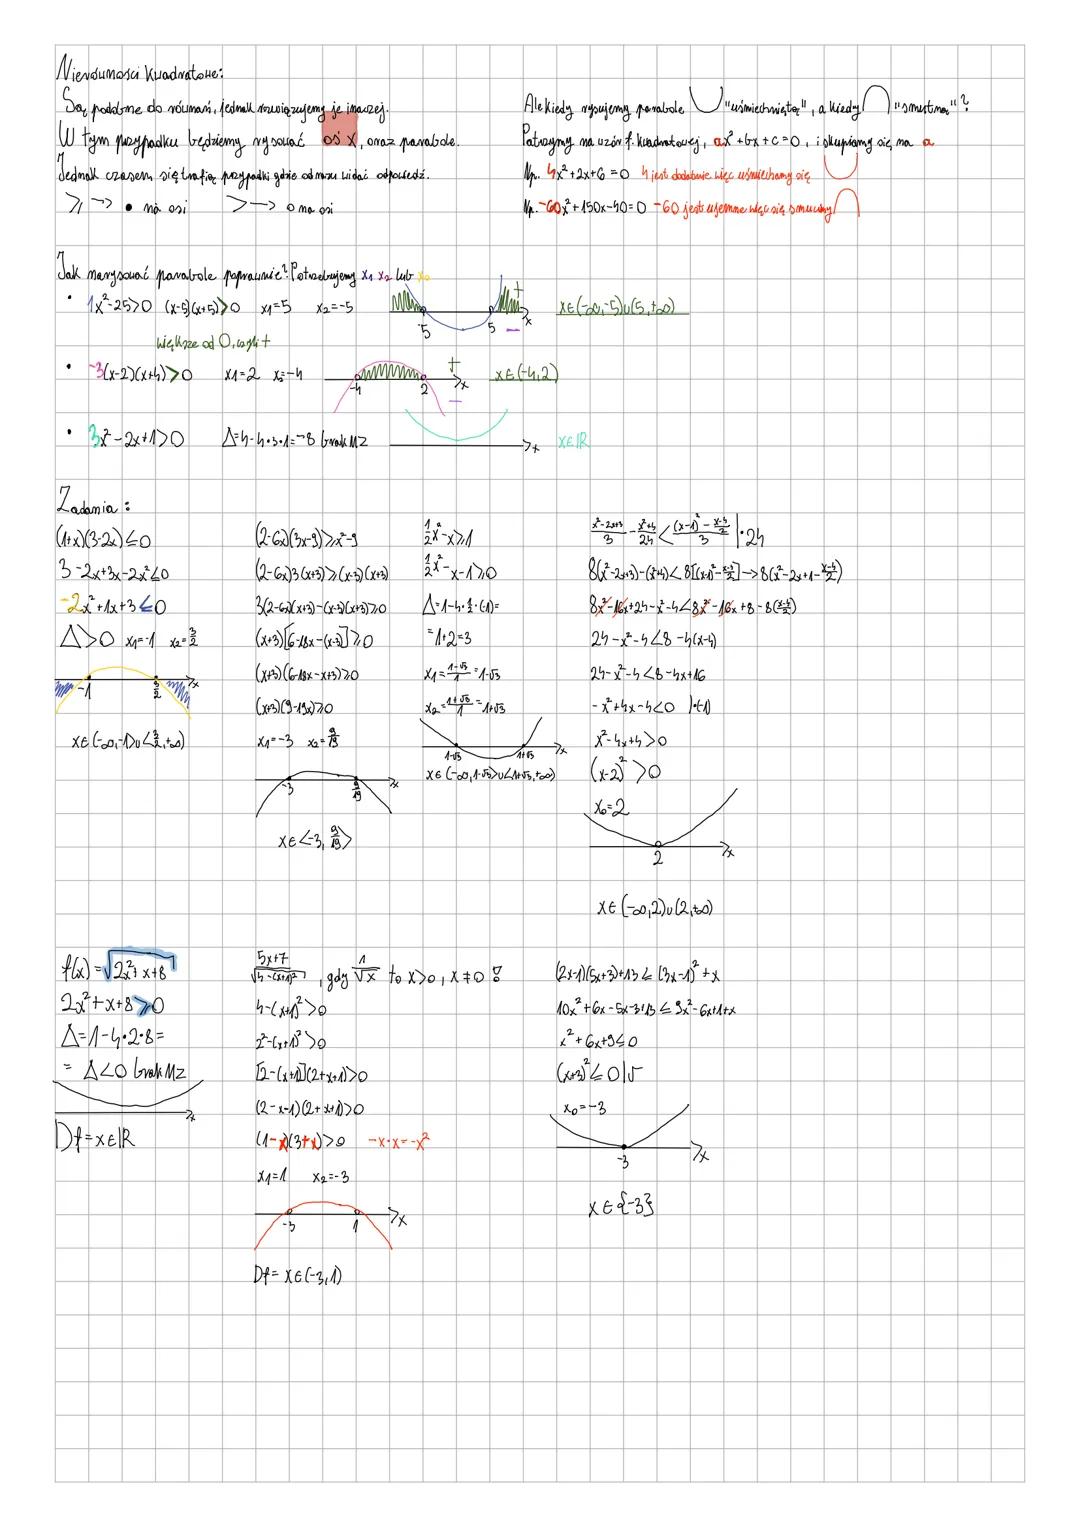 Nierówności kwadratowe:
Są podobne do równań, jednak rozwiązujemy je inaczej.
W tym przypadku będziemy rysować oś X, oraz parabole.
Jednak czasem się trafią przypadki gdzie od razu widać odpowiedź.
⩾ --> • na osi > --> o na osi
Ale kiedy rysujemy parabole "uśmiechniętą", a kiedy "smutną"?
Patrzymy na wzór f. kwadratowej, ax²+bx+c=0, i skupiamy się na a
Np. 4x²+2x+6=0 4 jest dodatnie więc uśmiechamy się
Np. -60x²+150x-40=0 -60 jest ujemne więc się smucimy
Jak narysować parabole poprawnie? Potrzebujemy x₁ x₂ lub x₀
• 1x²-25>0 (x-5)(x+5)>0 x₁=5 x₂=-5 -5 5 + - x x∈(-∞,-5)∪(5,+∞)
większe od 0, czyli +
• -3(x-2)(x+4)>0 x₁=2 x₂=-4 -4 2 + - x x∈(-4,2)
• 3x²-2x+1>0 Δ=4-4·3·1=-8 brak MZ x x∈ℝ
Zadania:
(1+x)(3-2x)≤0
3-2x+3x-2x²≤0
-2x²+1x+3≤0
Δ>0 x₁=-1 x₂=3/2
-1 3/2 x
x∈(-∞,-1>∪<3/2,+∞)
(2-6x)(3x-9)⩾x²-9
(2-6x)3(x+3)⩾(x-3)(x+3)
3(2-6x)(x+3)-(x-3)(x+3)⩾0
(x+3)[6-18x-(x-3)]⩾0
(x+3)(6-18x-x+3)⩾0
(x+3)(9-19x)⩾0
x₁=-3 x₂=9/19
-3 9/19 x
x∈<-3,9/19>
1/2x²-x⩾1
1/2x²-x-1⩾0
Δ=1-4·1/2·(-1)=
=1+2=3
x₁=(1-√3)/1=1-√3
x₂=(1+√3)/1=1+√3
1-√3 1+√3 x
x∈(-∞,1-√3>∪<1+√3,+∞)
(x²-2x+3)/3-(x²+4)/24<((x-1)²-(x-4)/2)/3 |·24
8(x²-2x+3)-(x²+4)<8[(x-1)²-(x-4)/2]-->8(x²-2x+1-(x-4)/2)
8x²-16x+24-x²-4<8x²-16x+8-8((x-4)/2)
24-x²-4<8-4(x-4)
24-x²-4<8-4x+16
-x²+4x-4<0 |·(-1)
x²-4x+4>0
(x-2)²>0
x₀=2
2 x
x∈(-∞,2)∪(2,+∞)
f(x)=√(2x²+x+8)
2x²+x+8⩾0
Δ=1-4·2·8=
= Δ<0 brak MZ
x
Df=x∈ℝ
(5x+7)/√(4-(x+1)²), gdy 1/√x to x>0, x≠0!
4-(x+1)²>0
2²-(x+1)²>0
[2-(x+1)](2+x+1)>0
(2-x-1)(2+x+1)>0
(1-x)(3+x)>0 -x·x=-x²
x₁=1 x₂=-3
-3 1 x
Df=x∈(-3,1)
(2x-1)(5x+3)+13≤(3x-1)²+x
10x²+6x-5x-3+13≤9x²-6x+1+x
x²+6x+9≤0
(x+3)²≤0|√
x₀=-3
-3 x
x∈{-3}